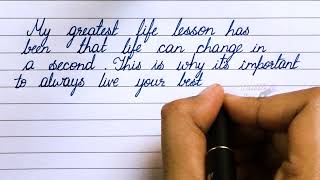 My greatest life lesson has
been that life can change in
a second . This is why its important
to always live your best